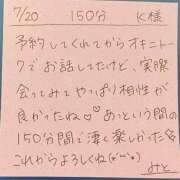 7/20 150分 K様
予約してくれてからオキニトー
クでお話してたけど、実際
会ってみてやっぱり相性が
良かったね♡♡あっという間の
150分間で凄く楽しかった
これからよろしくね(*˘︶˘*)
みと